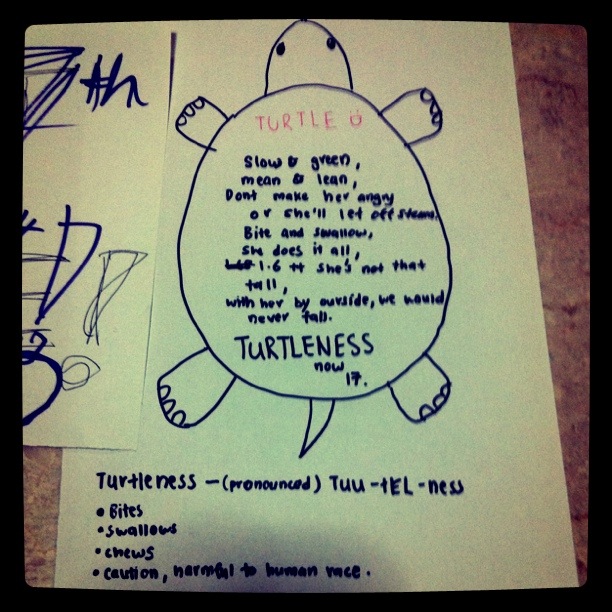 th
TURTLE
Slow & green,
mean & lean,
Dont make her angry
or she'll let off steam.
Bite and swallow,
she does it all,
1.6 she's not that
tall,
with her by ourside, we would
never fall.
TURTLENESS
now
17.
Turtleness - (pronounced) Tuu-tEL-ness
• Bites
• swallows
• chews
• caution, harmful to human race.